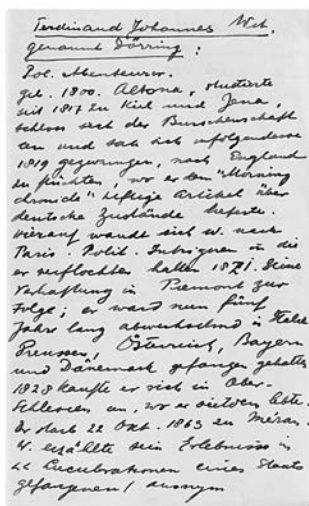 Ferdinand Johannes Wit,
genannt Dörring :
Pol. Abenteurer.
geb. 1800. Altona, studierte
seit 1817 zu Kiel und Jena,
schloss sich der Burschenschaft
an und sah sich infolgedessen
1819 gezwungen, nach England
zu flüchten, wo er dem "Morning
chronicle" heftige Artikel über
deutsche Zustände lieferte.
Hierauf wandte sich W. nach
Paris. Polit. Intriguen in die
er verflochten hatten 1821. Seine
Verhaftung in Piemont zur
Folge; er ward nun fünf
Jahre lang abwechselnd in Italien
Preussen, Österreich, Bayern
und Dänemark gefangen gehalten
1828 kaufte er sich in Ober-
Schlesien an, wo er seitdem lebte.
Er starb 22 Okt. 1863 zu Meran.
W. erzählte sein Erlebnisse in
Lucubrationen eines Staats
gefangenen! anonym